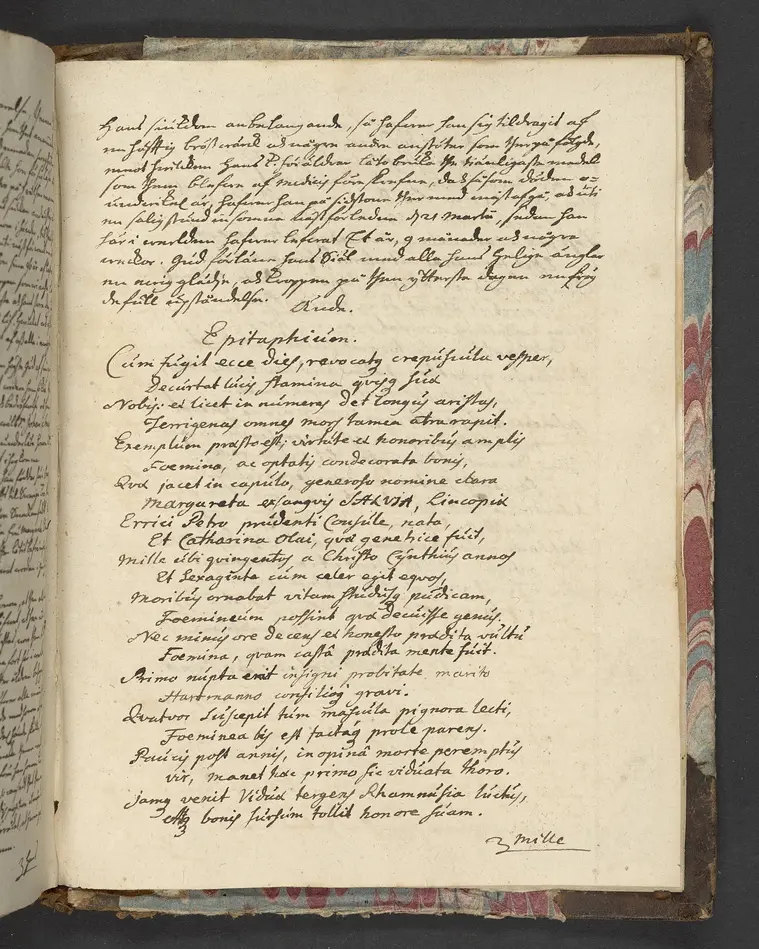 Hans siukdom anbelangande, så hafwer han sig tildragit af
en häfftig bröstwärck och några andra anstöter som ther på fölgde,
emot hwilken Hans K. föräldrar låto bruka the trånligaste medel
som them blefwo af medicis föreskrefne, dock såsom döden o-
undwikel. är, hafwer han på sidstone ther med måst afgå, och uti
en salig stund insomna näst förleden d. 21 Martii, sedan han
här i werlden hafwer lefwat Et år, 9 månader och några
weckor. Gud förläne hans Siäl med alla hans Helige änglar
en ewig glädie, och kroppen på then ytterste dagen en fröy
defull upståndelse.
Ände.
Epitaphium.
Cum fugit ecce dies, revocatq crepuscula vesper,
Decurtat lucis stamina quisq sua
Nobis: et licet in numeros det longus aristas,
Terrigenas omnes mors tamen atra rapit.
Exemplum præsto est; virtute et honoribus amplis
Foemina, ac optatis condecorata bonis,
Quæ jacet in capulo, generoso nomine clara
Margareta exsanguis SALVIA, Lincopiæ
Errici Petro prudenti Consule, nata,
Et Catharina Olai, quæ genetrice fuit,
Mille ubi quingentos a Christo Cynthius annos
Et Sexaginta cum celer egit equos,
Moribus ornabat vitam studusq pudicam,
Foemineum possint quæ decuisse genus.
Nec minus ore decens et honesto prædita vultu
Foemina, quam casta prædita mente fuit.
Primo nupta erat insigni probitate marito
Hartmanno consilioq gravi.
Quatuor suscepit tum mascula pignora lecti,
Foeminea bis est factaq prole parens.
Paucis post annis, inopina morte peremptus
vir, manet hæc primo sic viduata thoro.
Jamq venit Viduæ tergens Rhamnusia luctus,
bonis sursum tollit honore suam.
Mille